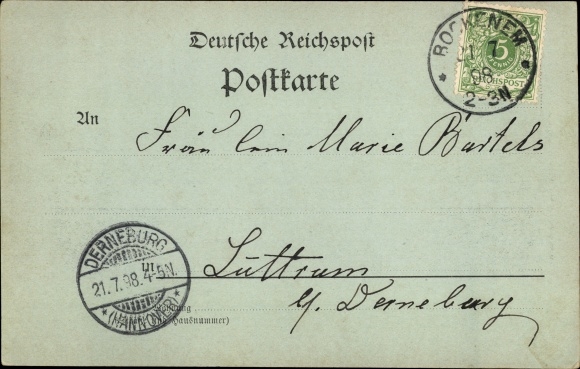 Deutsche Reichspost
Postkarte
BOCKENEM
21 7
98
2-3N
5
PFENNIG
REICHSPOST
An
Fräulein Marie Bartels
DERNEBURG
21.7.98.4-5N.
(HANNOVER)
Luttrum
b/ Derneburg
Wohnung
(Straße und Hausnummer)